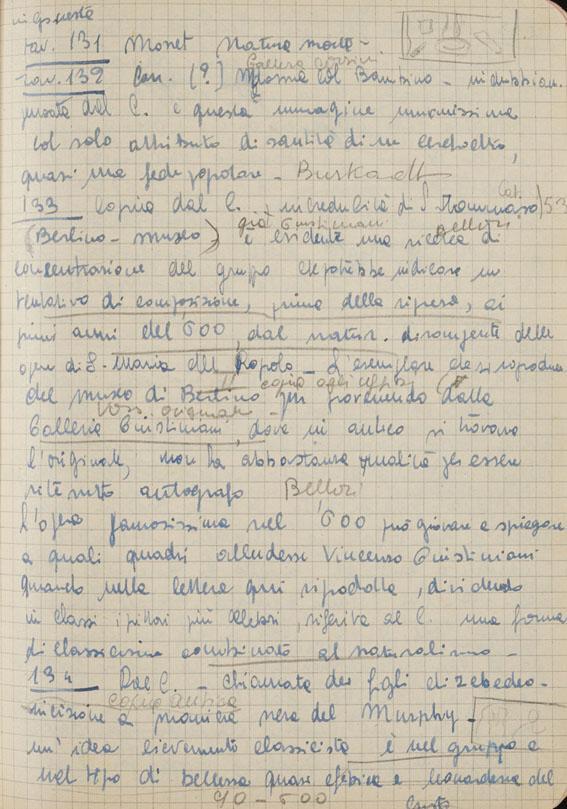 in questa
tav. 131 Monet Natura morta -
Galleria Corsini
tav. 132 Car. (?) Madonna col Bambino - indubbiam.
del C. è questa immagine umanissima
col solo attributo di santità di un cerchietto,
quasi una fede popolare - Burkardt
133 Copia dal C. incredulità di S. Tommaso Cat. 53
già Giustiniani Bellori
(Berlino - museo) è evidente una ricerca di
concentrazione del gruppo che potrebbe indicare un
tentativo di composizione, prima della ripresa, ai
primi anni del '600, dal natur. dirompente delle
opere di S. Maria del Popolo - L'esemplare che si riproduce
copia agli Uffizi
del museo di Berlino pur provenendo dalla
originale
Galleria Giustiniani, dove in antico si trovava
l'originale, non ha abbastanza qualità per essere
ritenuto autografo Bellori
L'opera famosissima nel '600 può giovare a spiegare
a quali quadri alludesse Vincenzo Giustiniani
quando nella lettera qui riprodotta, dividendo
in classi i pittori più celebri, riferiva al C. una forma
di classicismo combinato al naturalismo -
134 Dal C. - Chiamata dei figli di Zebedeo -
copia antica
incisione a maniera nera del Murphy -
un'idea lievemente classicista è nel gruppo e
nel tipo di bellezza quasi efebica e leonardesca del
90 - 600 Cristo